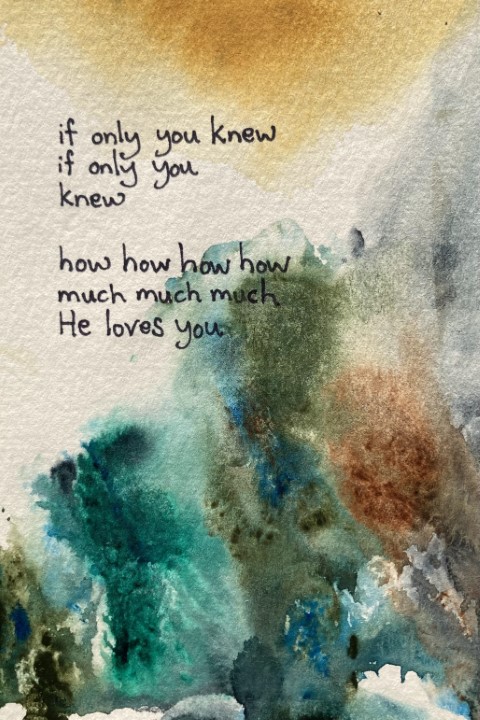 if only you knew
if only you
knew
how how how how
much much much
He loves you